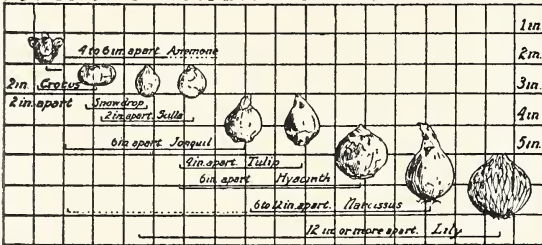 1 in.
4 to 6 in. apart Anemone
2 in.
2 in. Crocus
3 in.
2 in. apart Snowdrop
2 in. apart. Scilla
4 in
6 in apart Jonquil
5 in.
4 in. apart Tulip
6 in. apart Hyacinth
6 to 12 in. apart. Narcissus
12 in. or more apart. Lily